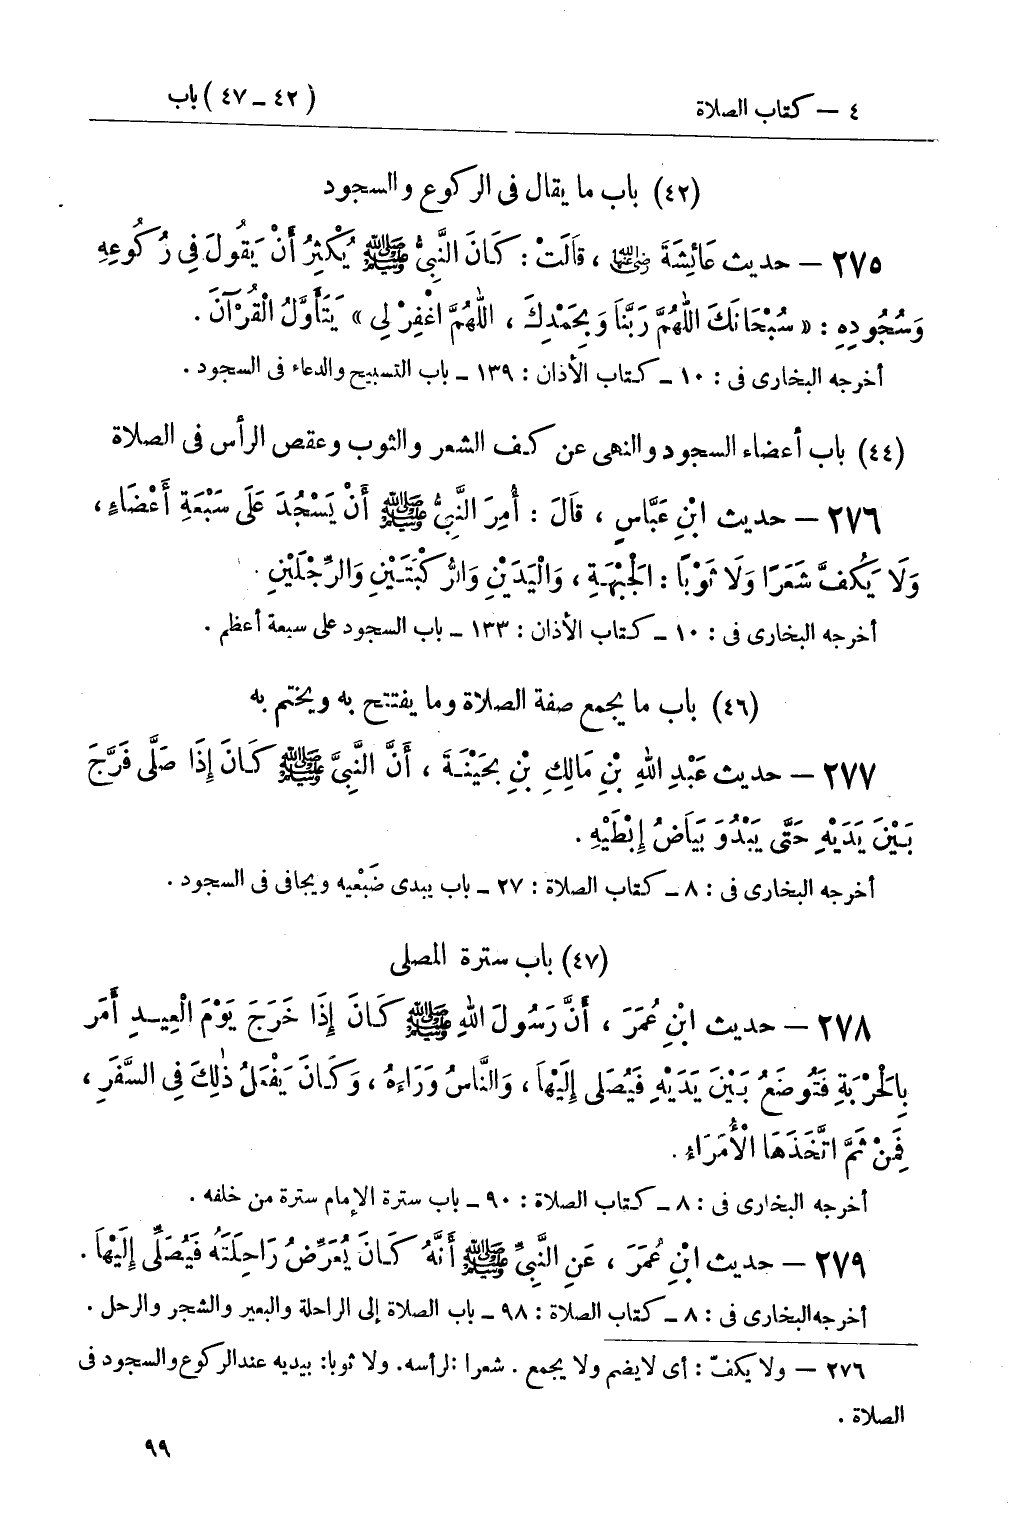 ٤ — كتاب الصلاة
(٤٢ — ٤٧) باب
(٤٢) باب ما يقال فى الركوع والسجود
٢٧٥ — حديث عَائِشَةَ رضي الله عنها ، قَالَتْ : كَانَ النَّبِيُّ ﷺ يُكْثِرُ أَنْ يَقُولَ فِى رُكُوعِهِ
وَسُجُودِهِ : « سُبْحَانَكَ اللّٰهُمَّ رَبَّنَا وَبِحَمْدِكَ ، اللّٰهُمَّ اغْفِرْ لِى » يَتَأَوَّلُ الْقُرْآنَ .
أخرجه البخارى فى : ١٠ ـ كتاب الأذان : ١٣٩ ـ باب التسبيح والدعاء فى السجود .
(٤٤) باب أعضاء السجود والنهى عن كف الشعر والثوب وعقص الرأس فى الصلاة
٢٧٦ — حديث ابْنِ عَبَّاسٍ ، قَالَ : أُمِرَ النَّبِيُّ ﷺ أَنْ يَسْجُدَ عَلَى سَبْعَةِ أَعْضَاءٍ ،
وَلَا يَكُفَّ شَعَرًا وَلَا ثَوْبًا : الْجَبْهَةِ ، وَالْيَدَيْنِ وَالرُّكْبَتَيْنِ وَالرِّجْلَيْنِ .
أخرجه البخارى فى : ١٠ ـ كتاب الأذان : ١٣٣ ـ باب السجود على سبعة أعظم .
(٤٦) باب ما يجمع صفة الصلاة وما يفتتح به ويختم به
٢٧٧ — حديث عَبْدِ اللهِ بْنِ مَالِكٍ بْنِ بُحَيْنَةَ ، أَنَّ النَّبِيَّ ﷺ كَانَ إِذَا صَلَّى فَرَّجَ
بَيْنَ يَدَيْهِ حَتَّى يَبْدُوَ بَيَاضُ إِبْطَيْهِ .
أخرجه البخارى فى : ٨ ـ كتاب الصلاة : ٢٧ ـ باب يبدى ضَبْعَيه ويجافى فى السجود .
(٤٧) باب سترة المصلى
٢٧٨ — حديث ابْنِ عُمَرَ ، أَنَّ رَسُولَ اللهِ ﷺ كَانَ إِذَا خَرَجَ يَوْمَ الْعِيدِ أَمَرَ
بِالْحَرْبَةِ فَتُوضَعُ بَيْنَ يَدَيْهِ فَيُصَلِّى إِلَيْهَا ، وَالنَّاسُ وَرَاءَهُ ، وَكَانَ يَفْعَلُ ذٰلِكَ فِى السَّفَرِ ،
فَمِنْ ثَمَّ اتَّخَذَهَا الْأُمَرَاءُ .
أخرجه البخارى فى : ٨ ـ كتاب الصلاة : ٩٠ ـ باب سترة الإمام سترة من خلفه .
٢٧٩ — حديث ابْنِ عُمَرَ ، عَنِ النَّبِيِّ ﷺ أَنَّهُ كَانَ يُعَرِّضُ رَاحِلَتَهُ فَيُصَلِّى إِلَيْهَا .
أخرجه البخارى فى : ٨ ـ كتاب الصلاة : ٩٨ ـ باب الصلاة إلى الراحلة والبعير والشجر والرحل .
٢٧٦ — ولا يكفّ : أى لا يضم ولا يجمع . شعرا : لرأسه. ولا ثوبا: بيديه عند الركوع والسجود فى
الصلاة .
٩٩